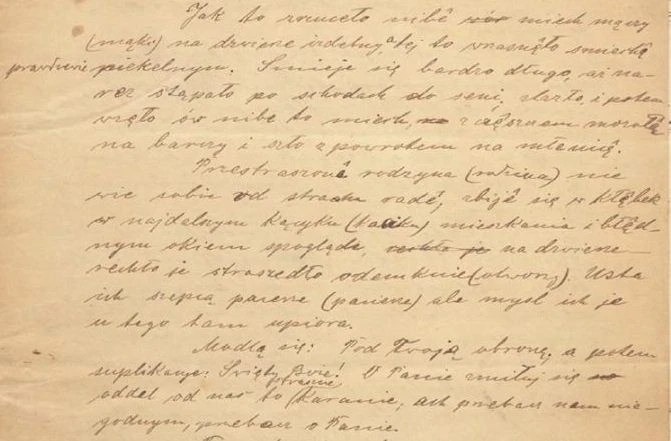 Jak to rzuceło nibė miech mączy
(mąki) na dzwierze izdebny a tej to wrzasnęło śmiechę
prawdziwie piekelnym. Śmieje się bardzo długo, aż na-
rez stąpało po schodach do seni, zlazło, i potem
wzęło ów nibe to miech, z
na barzy i szło z powrotem na młenię.
Przestraszonė rodzyna (rodzina) nie
wie sobie od strachu radė, zbijė się w kłębek
w najdalszym kącyku (kąciku) mieszkania i błęd-
nym okiem spoglądė, na dzwierze
rechło je straszedło odemknie (otworzy). Usta
ich szepią pacerze (pacierze) ale mysl ich je
u tego tam upiora.
Modlą się: Pod Twoją obronę, a potem
suplikacye: Święty Boże! O Panie zmiłuj się
oddel od nas to straszne karanie, ach przebacz nam nie-
godnym, przebacz o Panie.